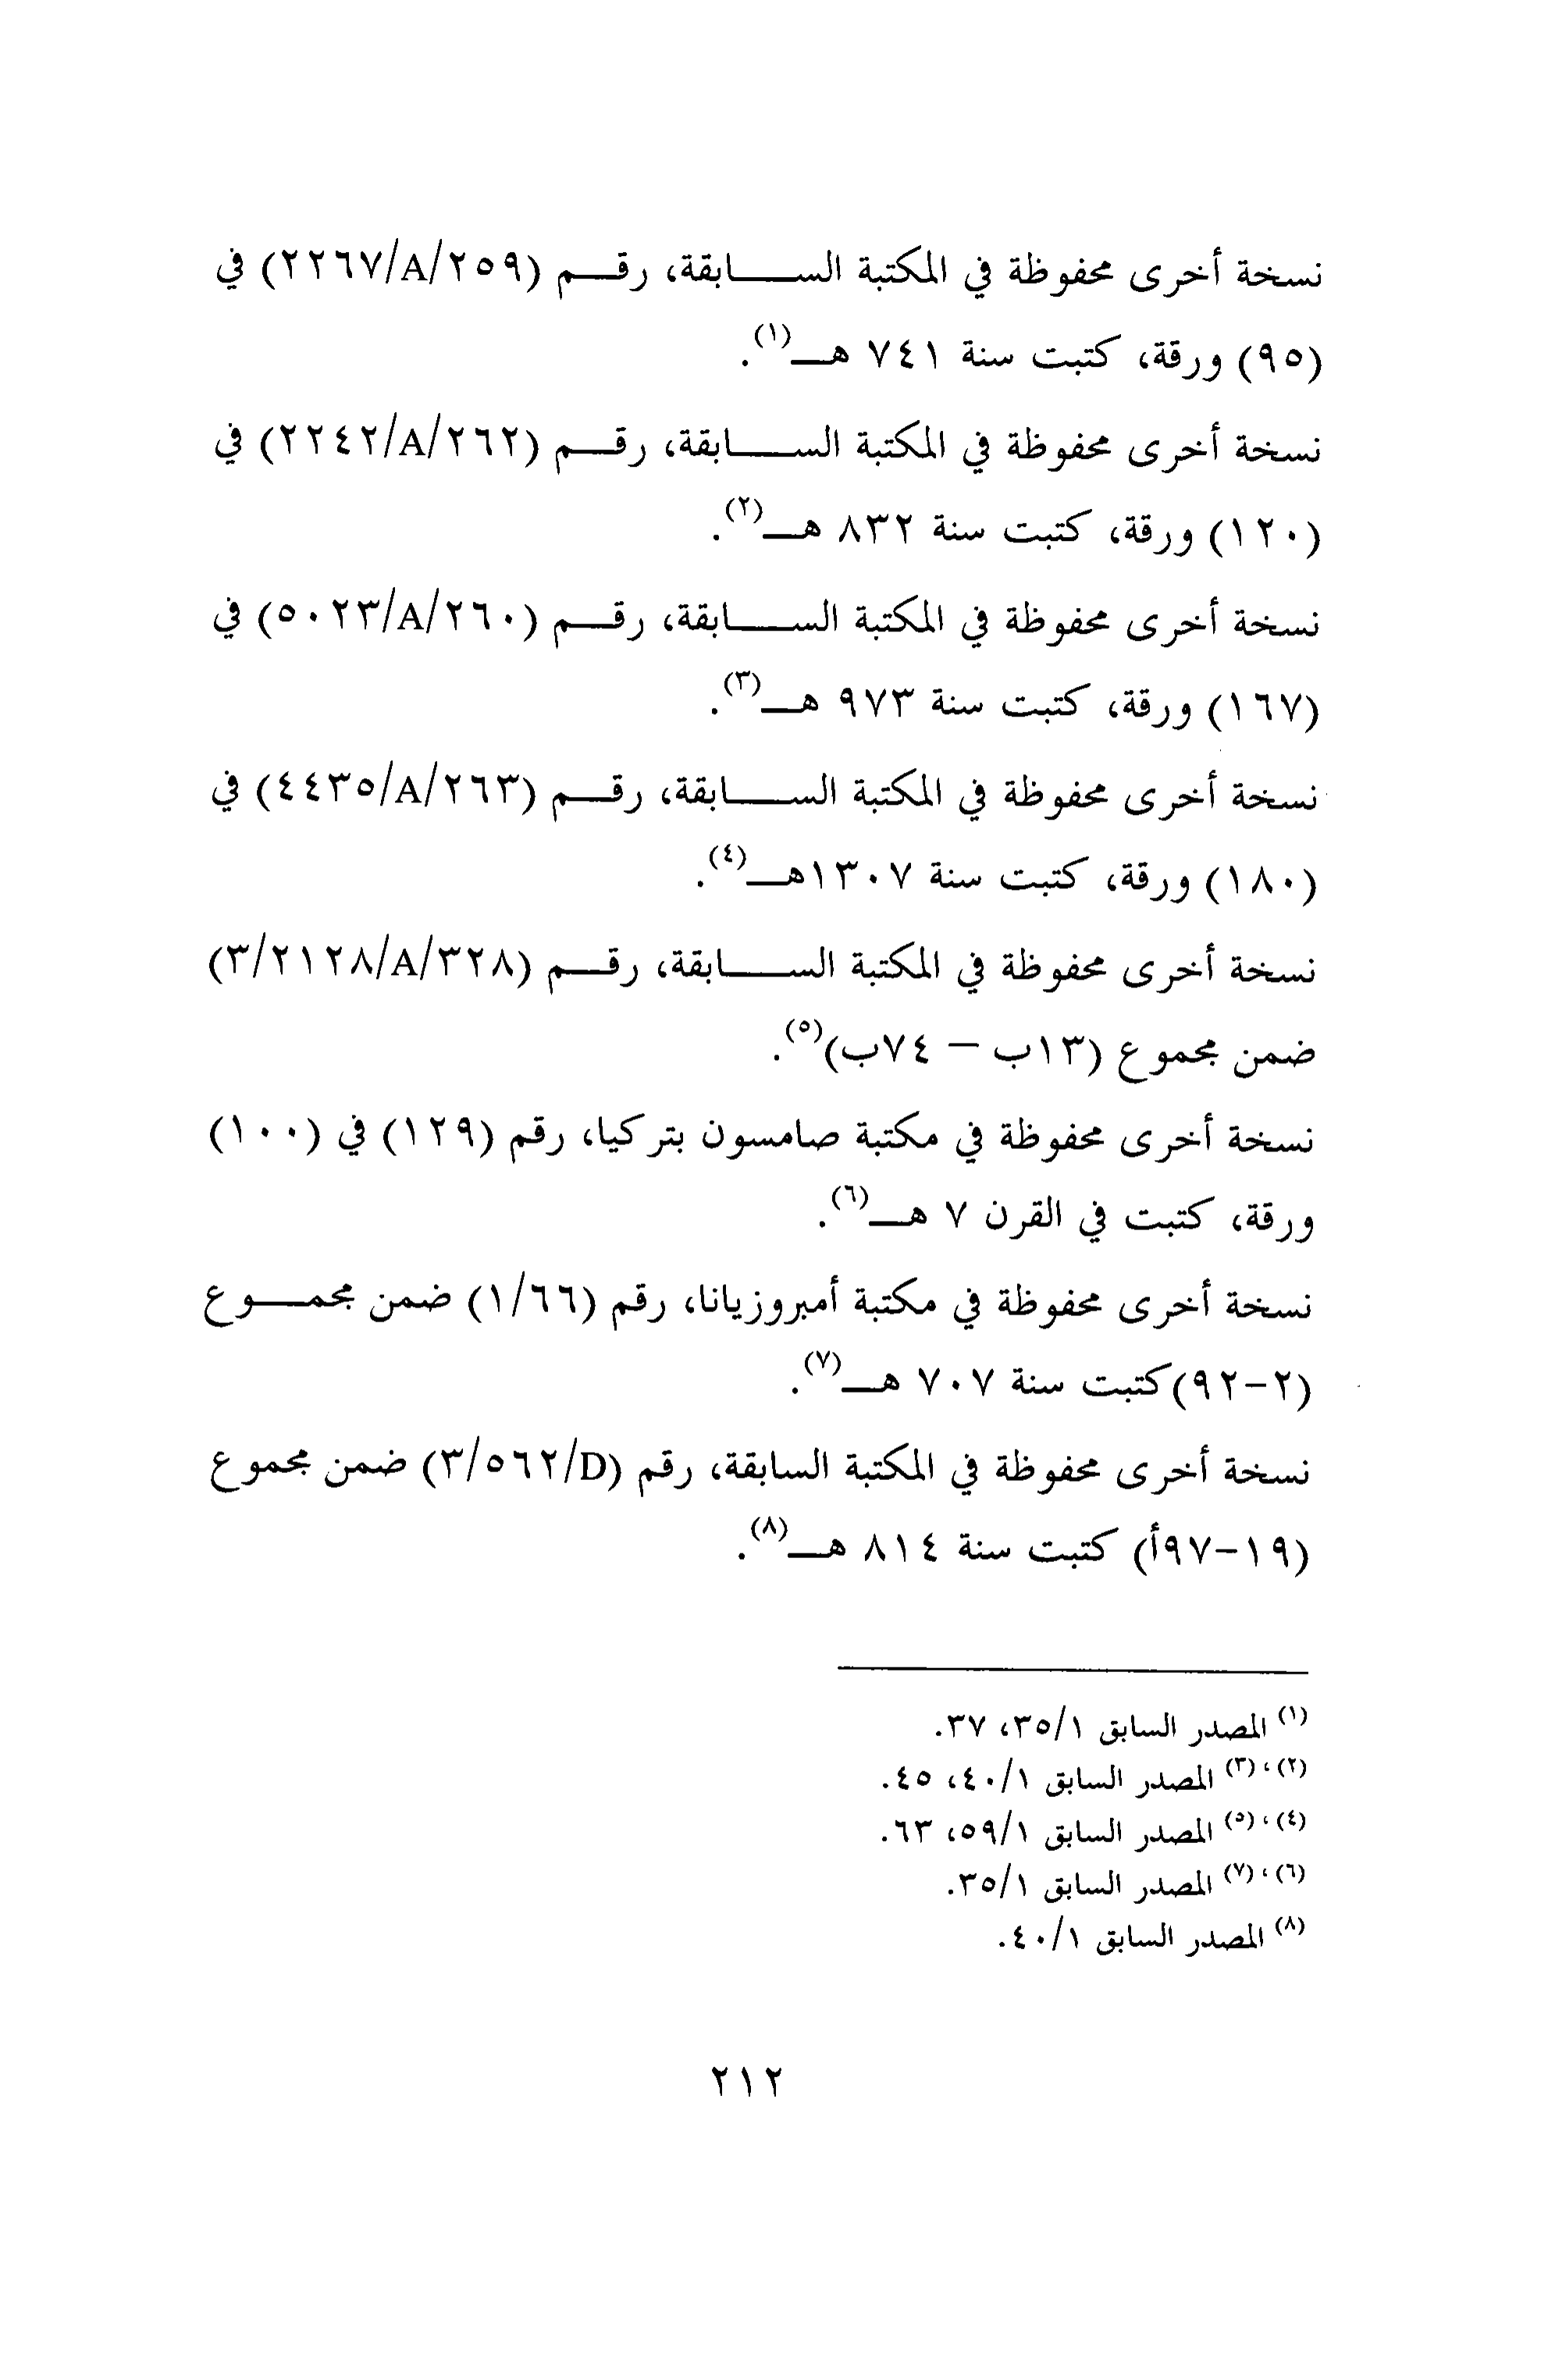 نسخة أخرى محفوظة في المكتبة الســـابقة، رقـــم (٢٢٦٧/A/٢٥٩) في
(٩٥) ورقة، كتبت سنة ٧٤١ هـ(١).
نسخة أخرى محفوظة في المكتبة الســـابقة، رقـــم (٢٢٤٢/A/٢٦٢) في
(١٢٠) ورقة، كتبت سنة ٨٣٢ هـ(٢).
نسخة أخرى محفوظة في المكتبة الســـابقة، رقـــم (٥٠٢٣/A/٢٦٠) في
(١٦٧) ورقة، كتبت سنة ٩٧٣ هـ(٣).
نسخة أخرى محفوظة في المكتبة الســـابقة، رقـــم (٤٤٣٥/A/٢٦٣) في
(١٨٠) ورقة، كتبت سنة ١٣٠٧هـ(٤).
نسخة أخرى محفوظة في المكتبة الســـابقة، رقـــم (٣/٢١٢٨/A/٣٢٨)
ضمن مجموع (١٣ب – ٧٤ب)(٥).
نسخة أخرى محفوظة في مكتبة صامسون بتركيا، رقم (١٢٩) في (١٠٠)
ورقة، كتبت في القرن ٧ هـ(٦).
نسخة أخرى محفوظة في مكتبة أمبروزيانا، رقم (١/٦٦) ضمن مجمـــوع
(٢-٩٢)كتبت سنة ٧٠٧ هـ(٧).
نسخة أخرى محفوظة في المكتبة السابقة، رقم (٣/٥٦٢/D) ضمن مجموع
(١٩-٩٧أ) كتبت سنة ٨١٤ هـ(٨).
(١) المصدر السابق ٣٥/١، ٣٧.
(٢)،(٣) المصدر السابق ٤٠/١، ٤٥.
(٤)،(٥) المصدر السابق ٥٩/١، ٦٣.
(٦)،(٧) المصدر السابق ٣٥/١.
(٨) المصدر السابق ٤٠/١.
٢١٢